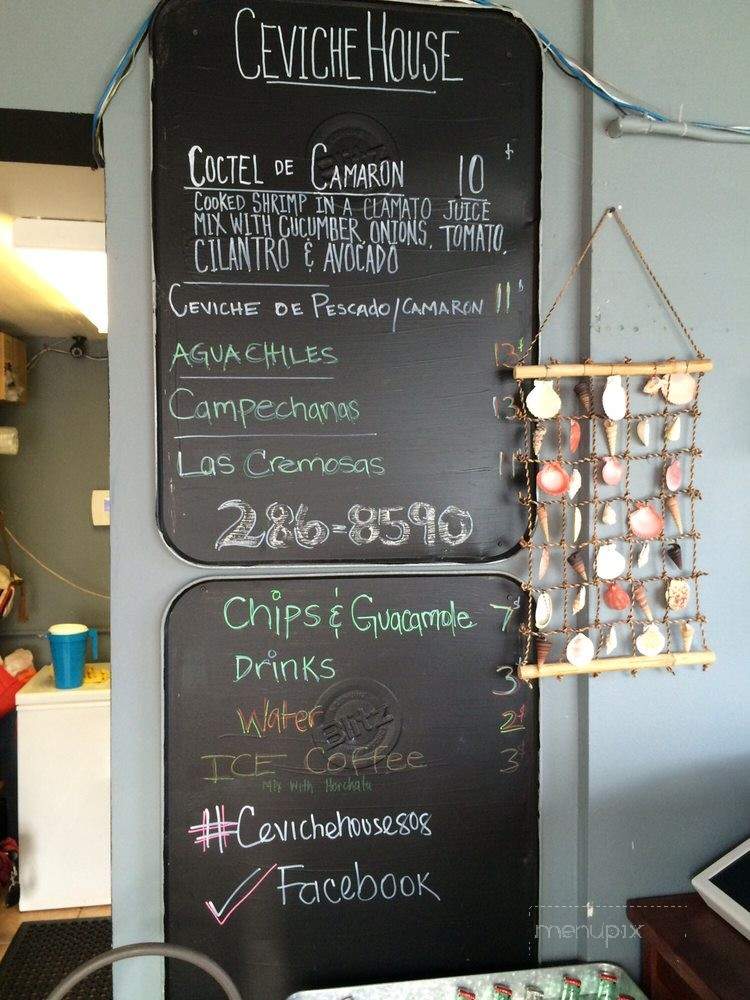 CEVICHE HOUSE
COCTEL DE CAMARON 10 $
COOKED SHRIMP IN A CLAMATO JUICE
MIX WITH CUCUMBER, ONIONS, TOMATO,
CILANTRO & AVOCADO
CEVICHE DE PESCADO/CAMARON 11 $
AGUACHILES 13 $
Campechanas 13
Las Cremosas 11
286-8590
Chips & Guacamole 7 $
Drinks 3
Water 2 $
Blitz
ICE Coffee 3 $
Mix with Horchata
#Cevichehouse808
Facebook
menupix